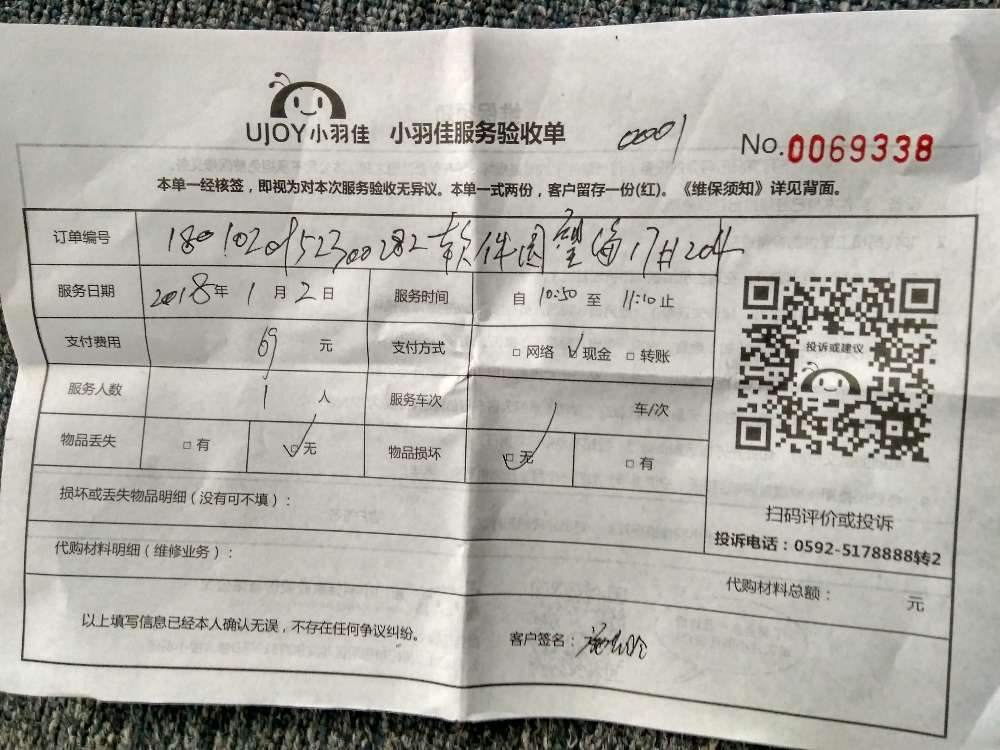 UJOY小羽佳 小羽佳服务验收单 0001 No.0069338
本单一经核签，即视为对本次服务验收无异议。本单一式两份，客户留存一份(红)。《维保须知》详见背面。
订单编号 1801020952300282软件园望海17#204
服务日期 2018年1月2日 服务时间 自10:50至11:10止
支付费用 69元 支付方式 □网络 ☑现金 □转账
投诉或建议
服务人数 1人 服务车次 车/次
物品丢失 □有 ☑无 物品损坏 ☑无 □有
损坏或丢失物品明细（没有可不填）：
扫码评价或投诉
投诉电话：0592-5178888转2
代购材料明细（维修业务）：
代购材料总额： 元
以上填写信息已经本人确认无误，不存在任何争议纠纷。
客户签名：